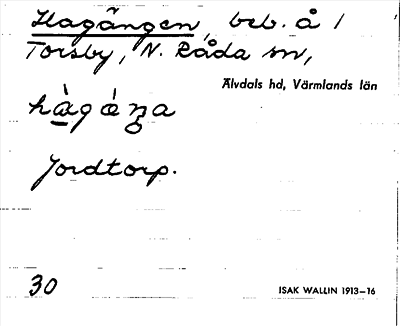 Hagängen, beb. å 1
Torsby, N. Råda sn,
Älvdals hd, Värmlands län
hàgáŋa
Jordtorp.
30
ISAK WALLIN 1913–16